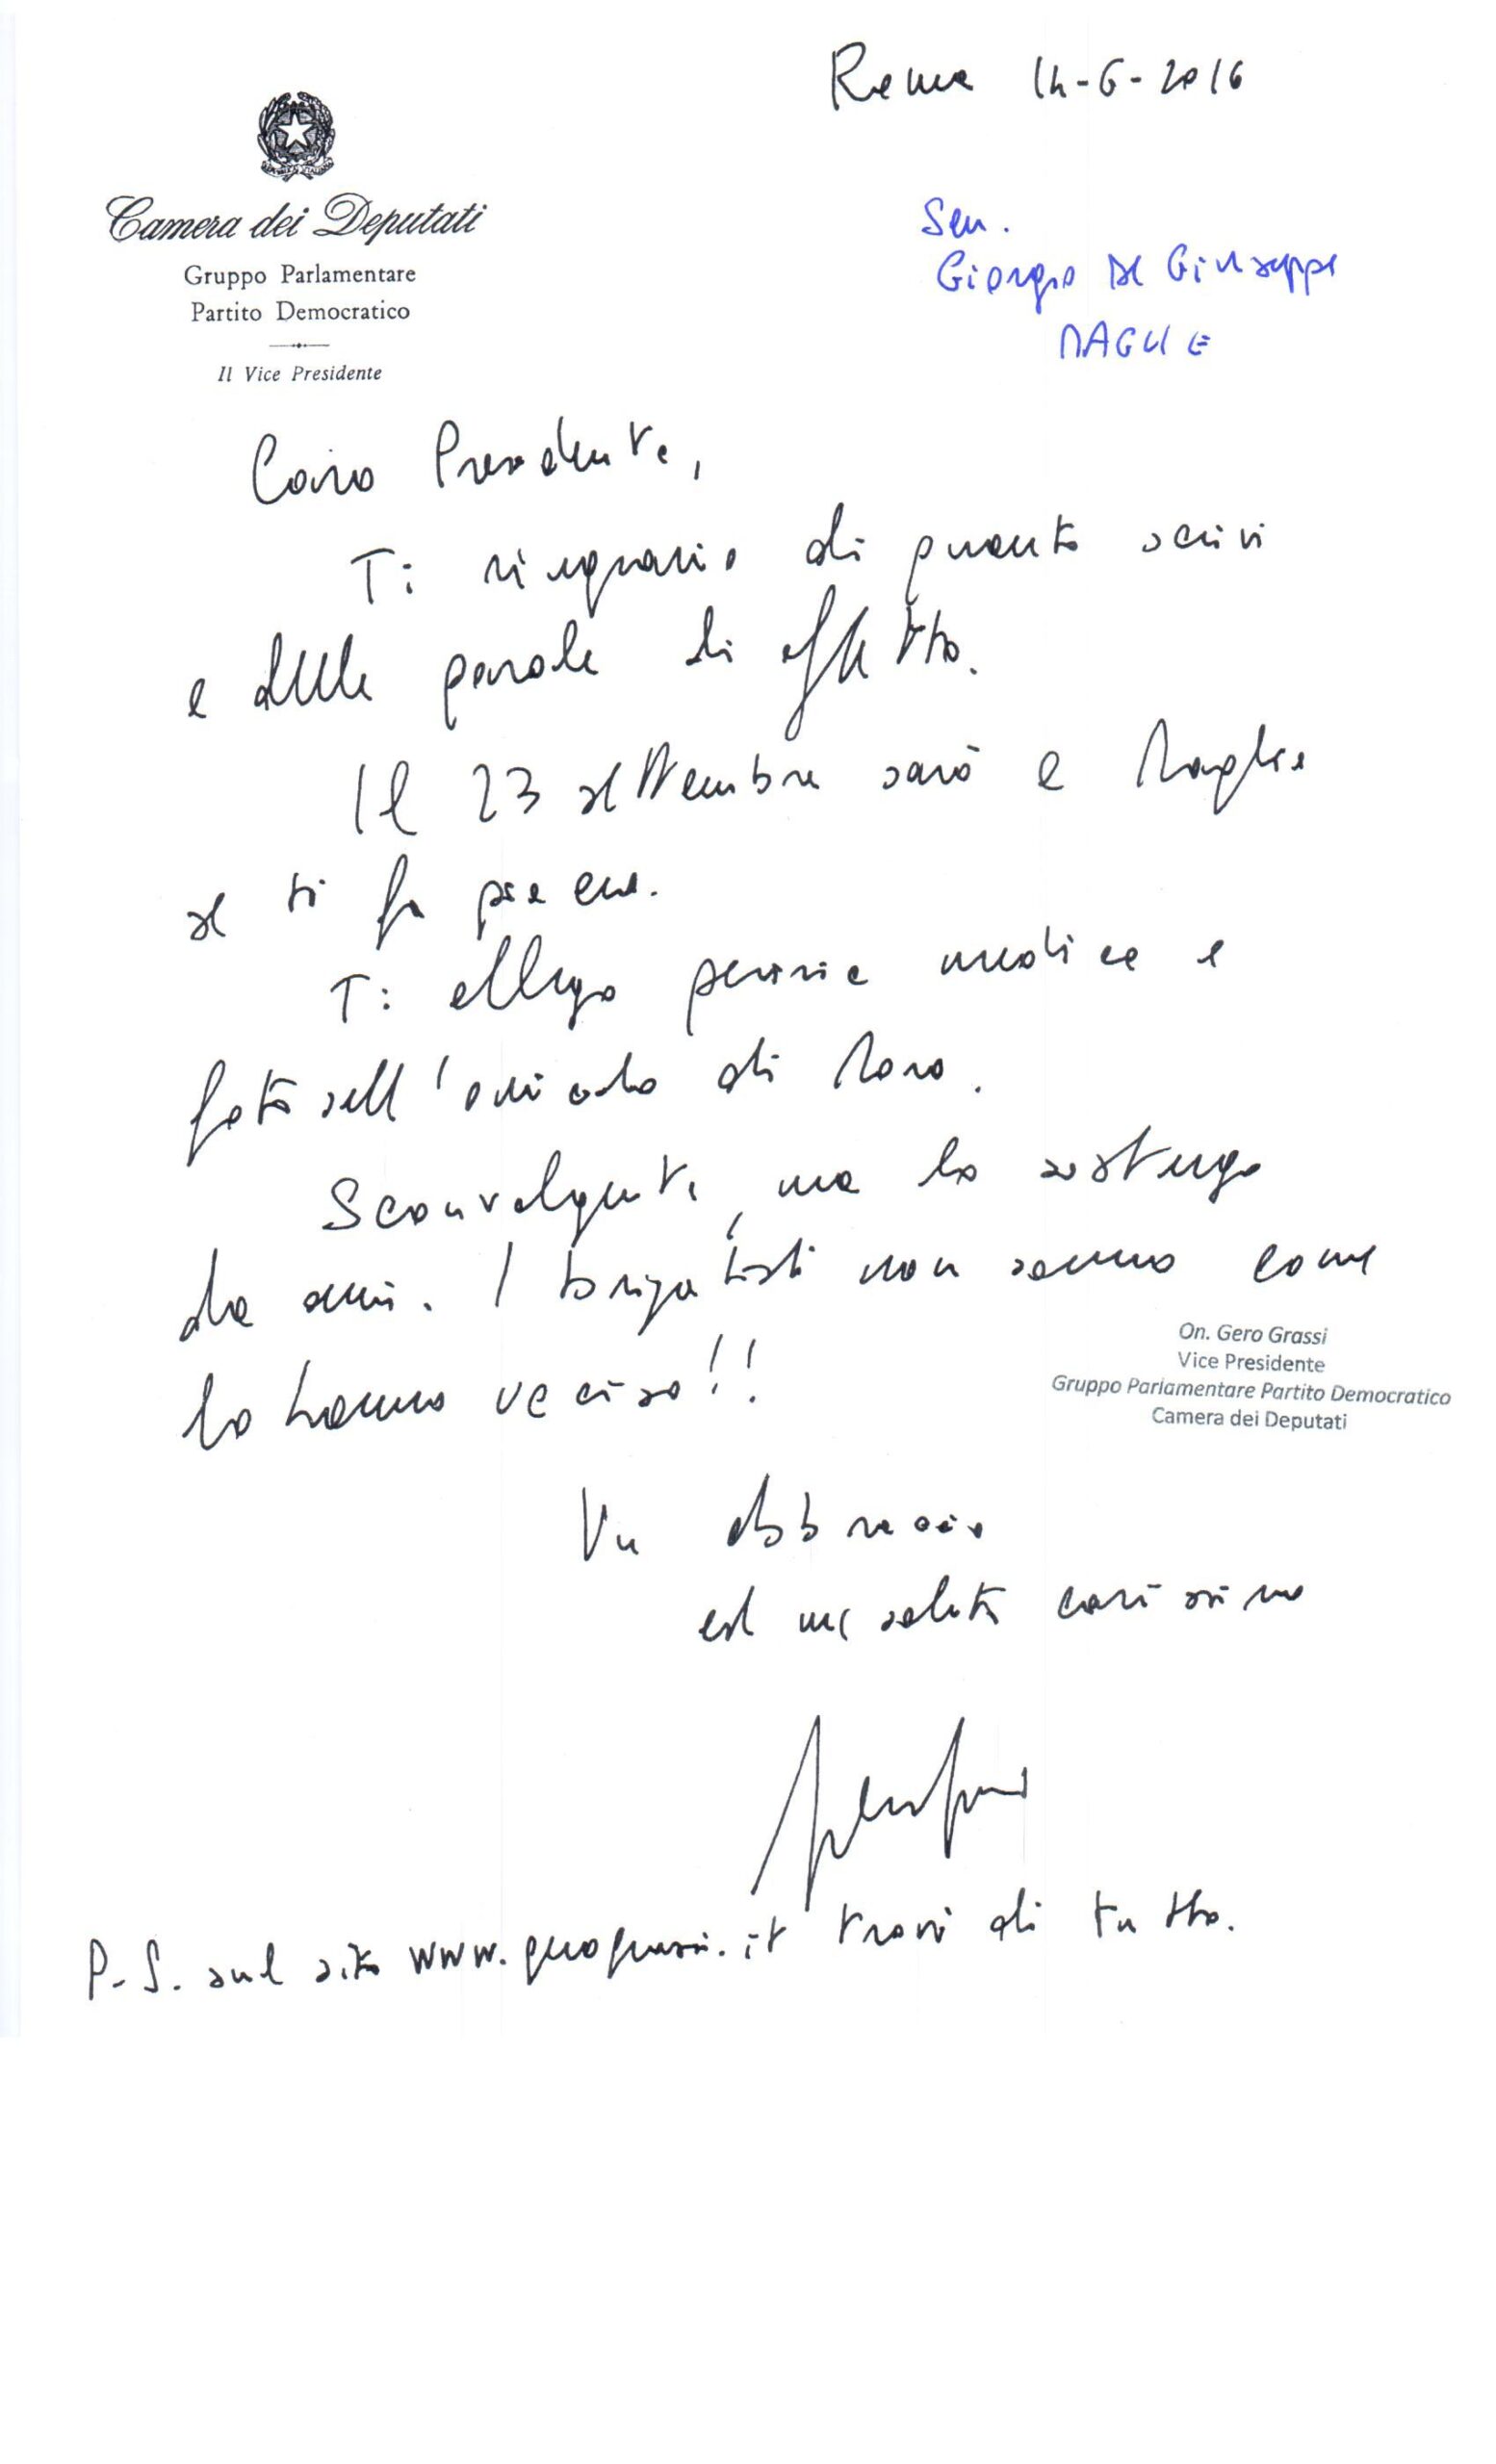 Roma 14-6-2016
Camera dei Deputati
Gruppo Parlamentare
Partito Democratico
Il Vice Presidente
Sen.
Giorgio De Giuseppe
MAGLIE
Caro Presidente,
Ti ringrazio di quanto scrivi
e delle parole di affetto.
Il 23 settembre sarò a Maglie
se ti fa piacere.
Ti allego perizia medica e
foto sull'omicidio di Moro.
Sconvolgente, ma lo sostengo
da anni. I brigatisti non sanno come
lo hanno ucciso!!
On. Gero Grassi
Vice Presidente
Gruppo Parlamentare Partito Democratico
Camera dei Deputati
Un abbraccio
ed un saluto carissimo
Gero Grassi
P.S. sul sito www.gerograssi.it trovi di tutto.